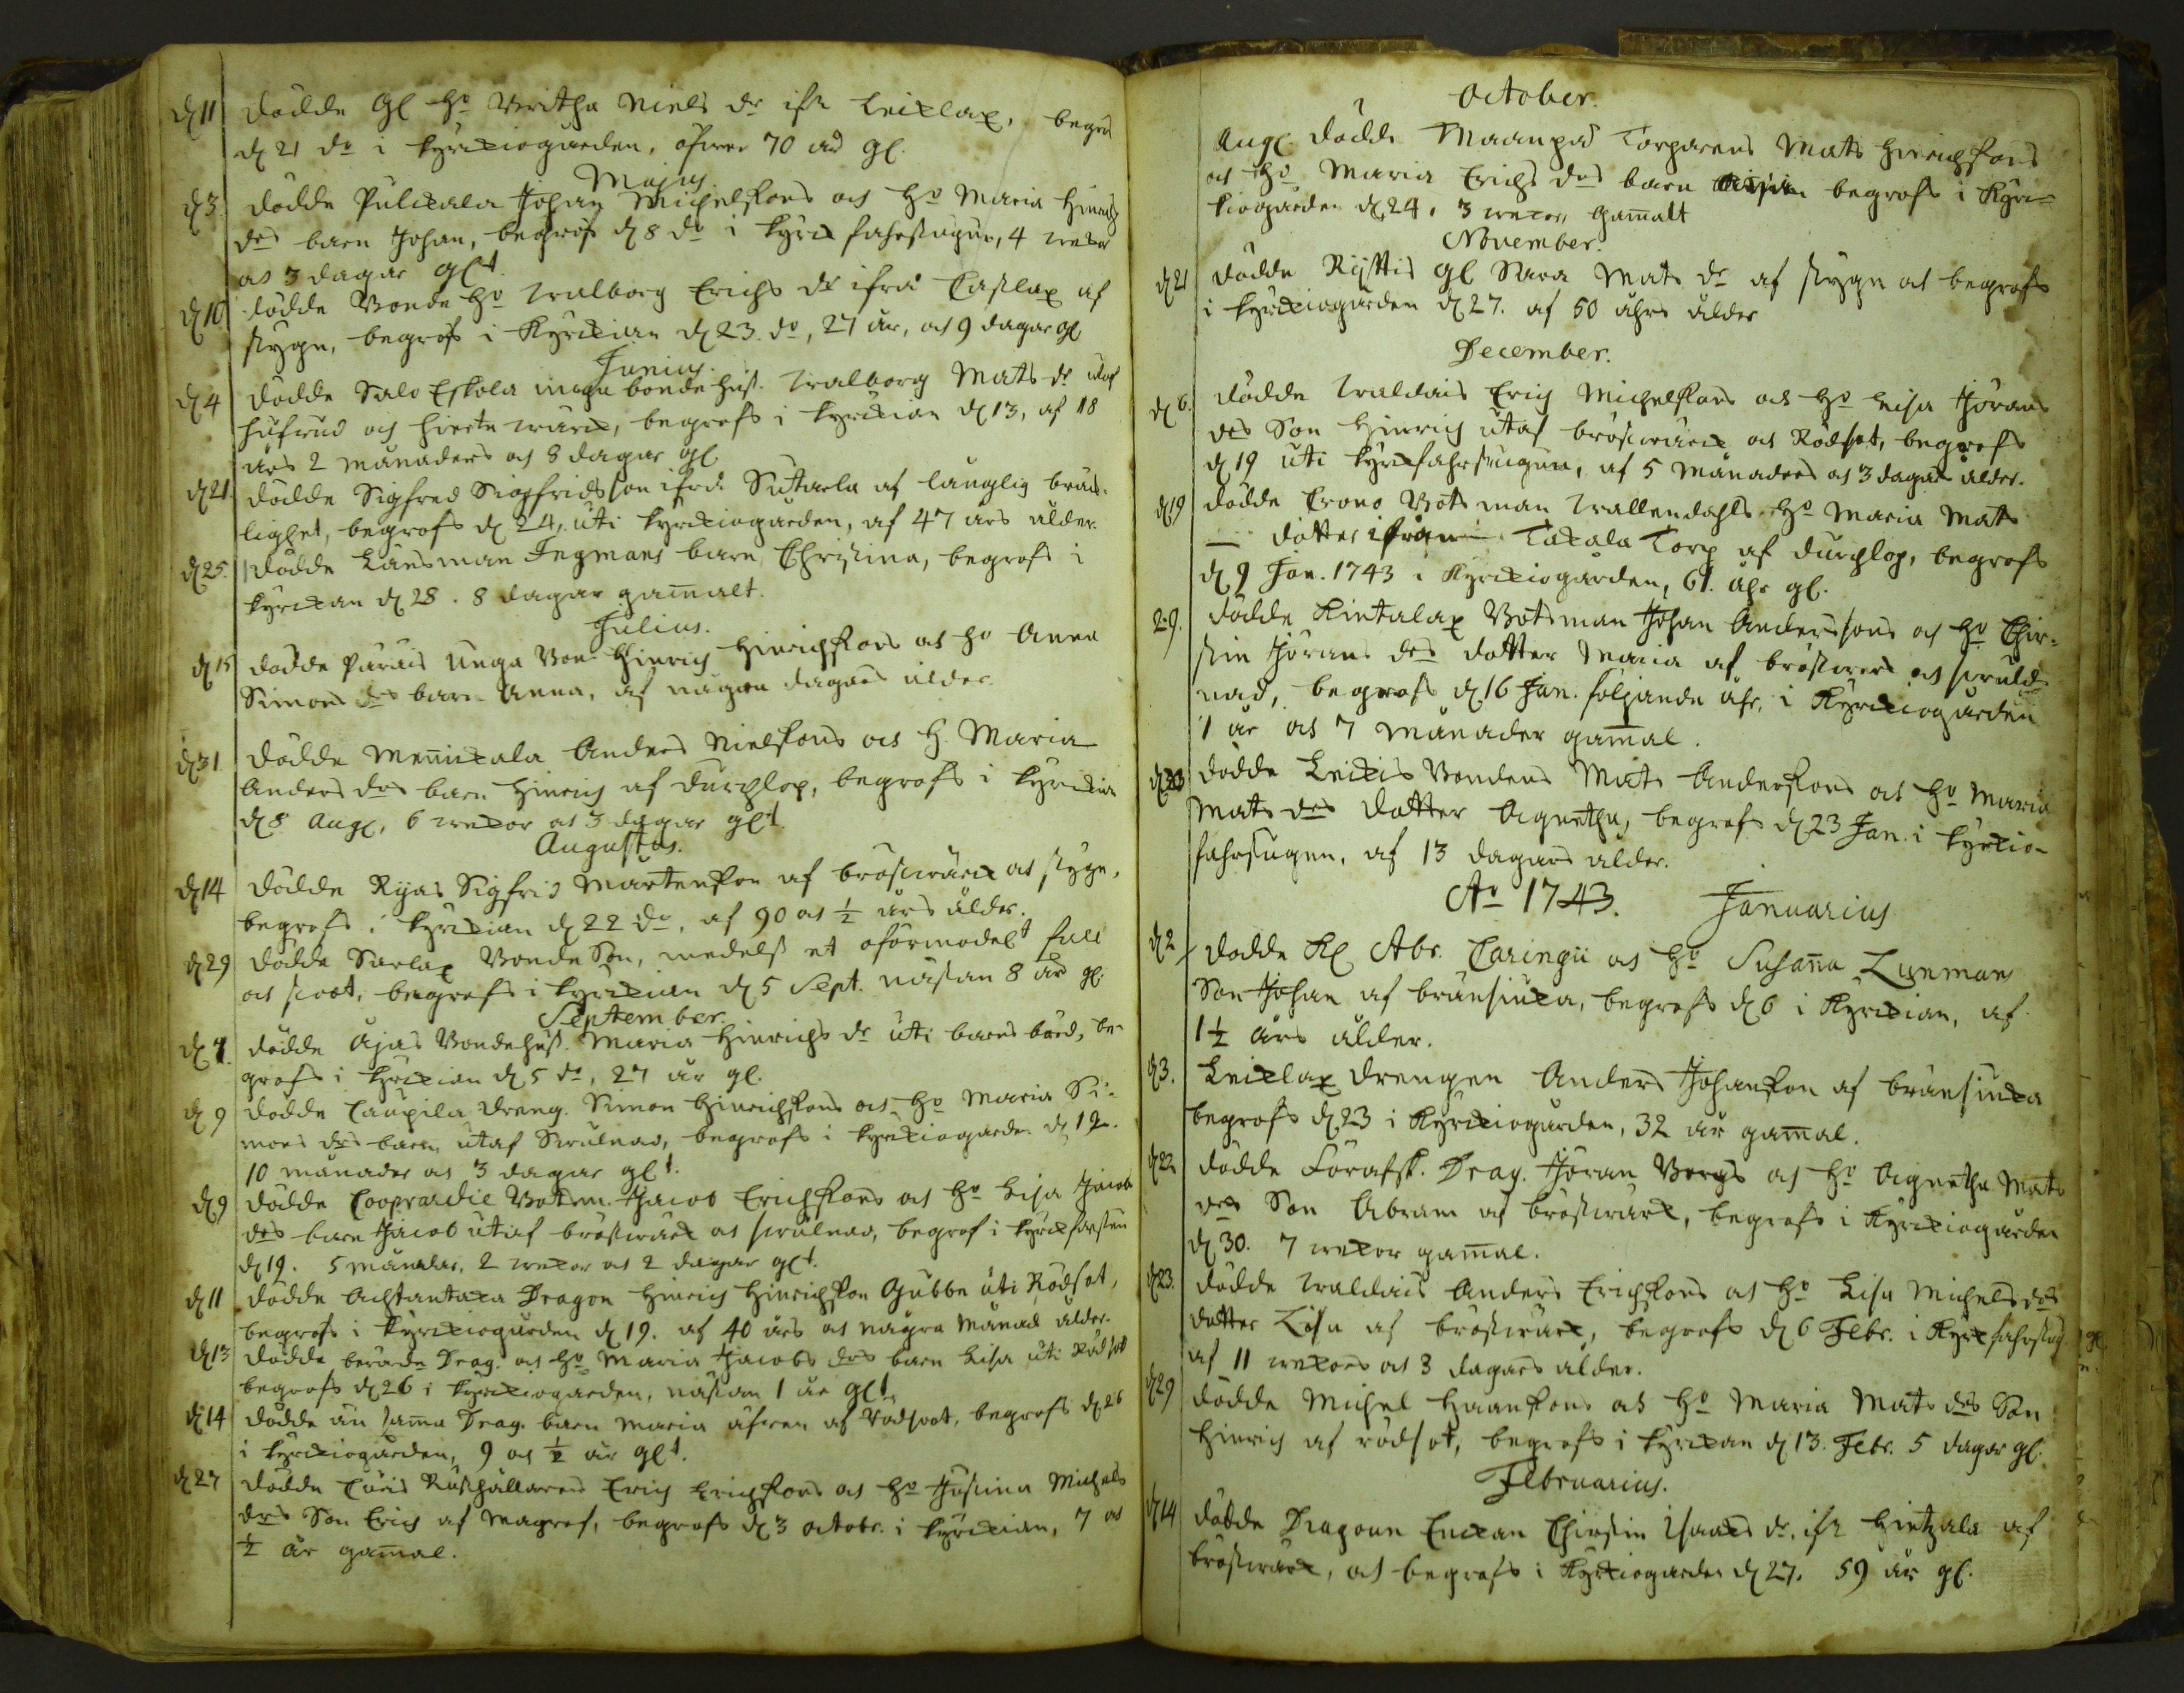 d 11 dödde Gl. Ho Britha Niels dr ifr. Leixlax, begrofs
d 21 do i kyrckiogården, öfwer 70 år gl.
Majus
d 3. dödde Pulckala Johan Michelssons och Ho Maria Hinrichs
drs barn Johan, begrofs d 8 do i kyrckfahrstugun, 4 wekor
och 3 dagar glt.
d 10 dödde Bonde Ho Walborg Erichs dr ifrå Caslax af
styng, begrofs i Kyrckian d 23. do, 27 år, och 9 dagar gl.
Junius.
d 4 dödde Salo Eskola unga bonde hust. Walborg Mats dr utaf
hufwud och hierte wärck, begrofs i kyrckian d 13, af 18
års 2 månaders och 8 dagar gl
d 21. dödde Sigfred Sigfridsson ifrå Suttarla af långlig bräck-
lighet, begrofs d 24, uti kyrckiogården, af 47 års ålder
d 25. dödde Länsman Ingmans barn Christina, begrofs i
kyrckan d 28. 8 dagar gamalt.
Julius.
d 15 dödde Parais unga Bon. Hinrich Hinrichssons och Ho Anna
Simons drs barn Anna, af några dagars ålder.
d 31 dödde Mennickala Anders Nielssons och H. Maria
Anders drs barn Hinrich af durchlop, begrofs i kyrckian
d 8 Aug. 6 wekor och 3 dagar glt.
Augustus.
d 14 dödde Rijas Sigfrid Mårtensson af bröstwärck och styng,
begrofs i kyrckian d 22 do, af 90 och ½ års ålder.
d 29 dödde Sarlax Bonde Son, medelst et oförmodelt fall
och skoot, begrofs i kyrckian d 5 Sept. nästan 8 år gl.
September.
d 1. dödde Ajas Bondehust. Maria Hinrichs dr uti barns börd, be-
grofs i kyrckian d 5 do, 27 år gl.
d 9 dödde Caupila dreng. Simon Hinrichssons och Ho Maria Si-
mons drs barn, utaf Sinlnad, begrofs i kyrckiogården d 12.
10 månader och 3 dagar glt.
d 9 dödde Båtsm. Jacob Erichssons och Ho Lisa Jacobs
drs barn Jacob utaf bröstwärck och begrof i kyrck
d 19. 5 månader, 2 wekor och 2 dagar glt.
d 11 dödde Achtantaxa Dragon Hinrich Hinrichsson Gubbe uti Rödsot,
begrofs i kyrckiogården d 19. af 40 års och några månad ålder.
d 13 dödde berörde Drag. och Ho Maria Jacobs drs barn Lisa uti Rödsot
begrofs d 26 i kyrckiogården, nästan 1 år glt.
d 14 dödde än samma Drag. barn Maria äfwen af Rödsoot, begrofs d 26
i kyrckiogården, 9 och ½ år glt.
d 27 dödde Curis Rusthållarens Erich Erichssons och Ho Justina Michels
drs Son Erich af Magref, begrofs d 3 octobr. i kyrckian, 7 och
½ år gammal.
October.
Aug. dödde Maanpää Torparens Mats Hinrichssons
och Ho Maria Erichs drs barn begrofs i Kyrc-
kiogården d 24. 3 wekor gammalt
November.
d 21 dödde Rijttis gl Sara Mats dr af styng och begrofs
i kyrckiogården d 27. af 50 åhrs ålder
December.
d 6. dödde Waldais Erich Michelssons och Ho Leisa Jörans
drs Son Hinrich utaf bröstwärck och Rödsot, begrofs
d 19 uti kyrckfahrstugun, af 5 månaders och 3 dagars ålder.
d 19 dödde Crono Båtsman Wallendahls Ho Maria Mats
— dotter ifrån — Tackala Torp af durchlop, begrofs
d 9 Jan. 1743 i Kyrckiogården, 61. åhr gl.
29. dödde Kintalax Båtsman Johan Anderssons och Ho Chir-
stin Jörans drs dotter Maria af bröstwerk och
nad, begrofs d 16 Jan. följande åhr, i Kyrckiogården
1 år och 7 månader gammal.
d 23 dödde Leikis Bondens Mats Anderssons och Ho Maria
Mats drs dotter Agnetha, begrofs d 23 Jan. i kyrckio-
fahrstugun, af 13 dagars ålder.
Ao 1743. Januarius
d 2 dödde Kl. Abr. Caringii och Ho Susanna Lunmans
Son Johan af bränsiuka, begrofs d 6 i Kyrckian, af
1½ års ålder.
d 3. Leixlax drengen Anders Johansson af bränsiuka
begrofs d 23 i Kyrckiogården, 32 år gammal.
d 22 dödde Forassk. Drag. Jöran Bergs och Ho Agnetha Mats
drs Son Abram af bröstwärck, begrofs i Kyrckiogården
d 30. 7 wekor gammal.
d 23. dödde Waldais Anders Erichssons och Ho Lisa Michels drs
dotter Lisa af bröstwärck, begrofs d 6 Febr. i Kyrckfahrstug.
af 11 wekors och 3 dagars ålder.
d 29 dödde Michel Haanssons och Ho Maria Mats drs Son
Hinrich af rödsot, begrofs i kyrckan d 13. Febr. 5 dagar gl.
Februarius.
d 14 dödde Dragoun Enckan Chirstin Isaacs dr. ifr. Hietzala af
bröstwärck, och begrofs i Kyrckiogården d 27. 59 år gl.